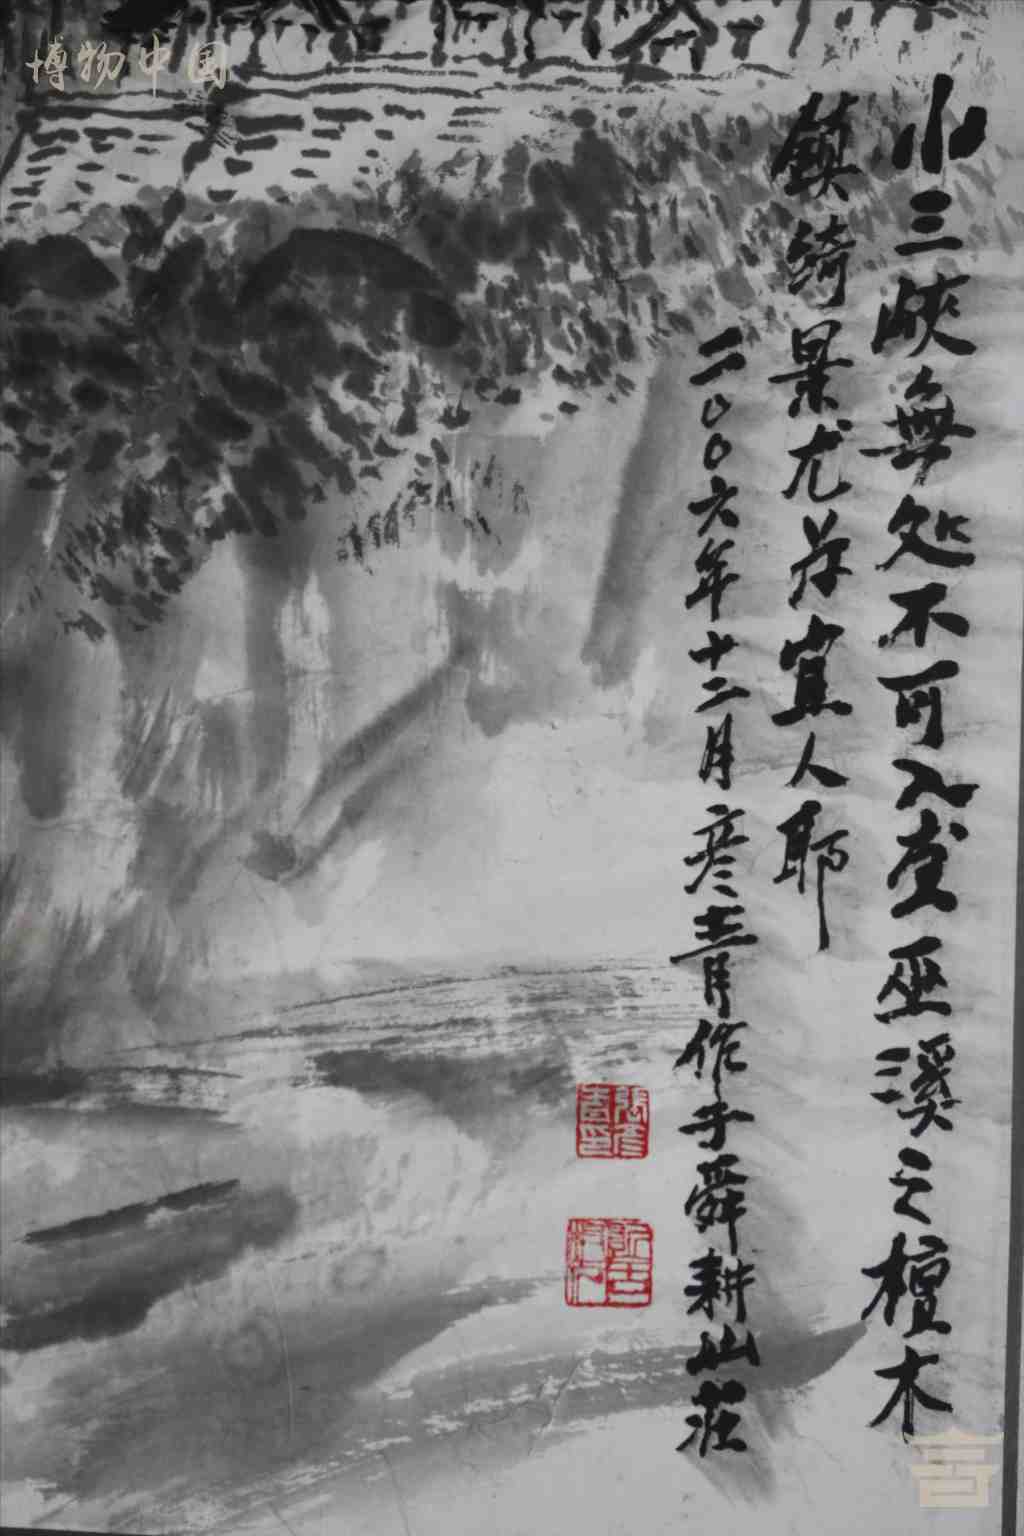 博物中国
小三峡無处不可入画巫溪之檀木
鎮绮景尤为宜人耶
二〇〇六年十二月彦青作于舜耕山莊
張彦青印